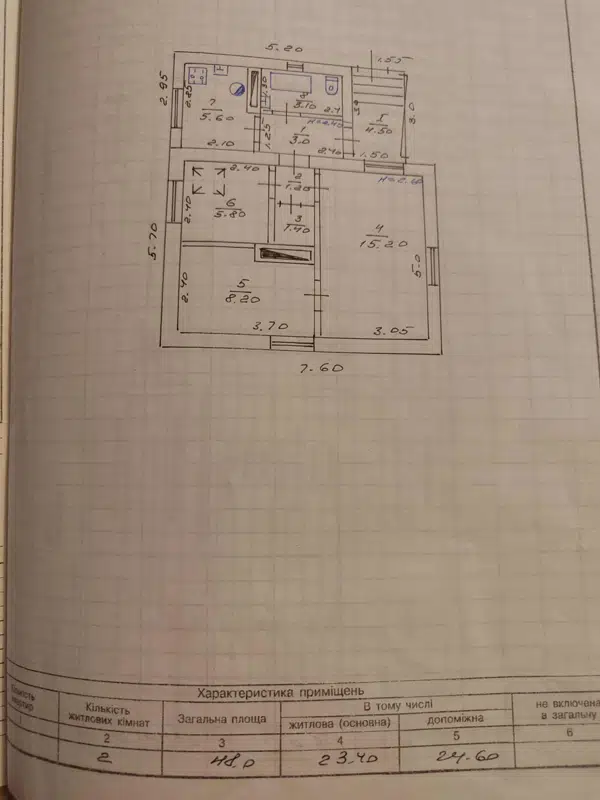 5.20
1.55
2.95
2.25
7
5.60
2.10
8
3.10
2.1
1.25
1
3.0
2.40
I
4.50
3.0
1.50
2.40
2
1.20
2.40
6
5.80
3
1.40
4
15.20
5.0
5.70
2.40
5
8.20
3.70
3.05
7.60
Характеристика приміщень
Кількість
житлових кімнат
Загальна площа
В тому числі
житлова (основна)
допоміжна
не включена
в загальну
2
3
4
5
6
2
48.0
23.40
24.60